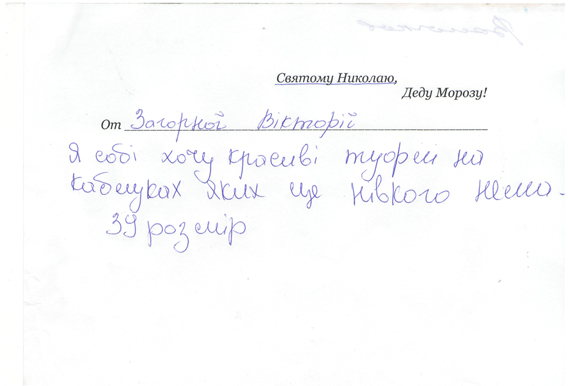 Святому Николаю,
Деду Морозу!
От Загорной Вікторій
Я собі хочу красиві туфлі на
каблуках яких ще нівкого нема.
39 розмір